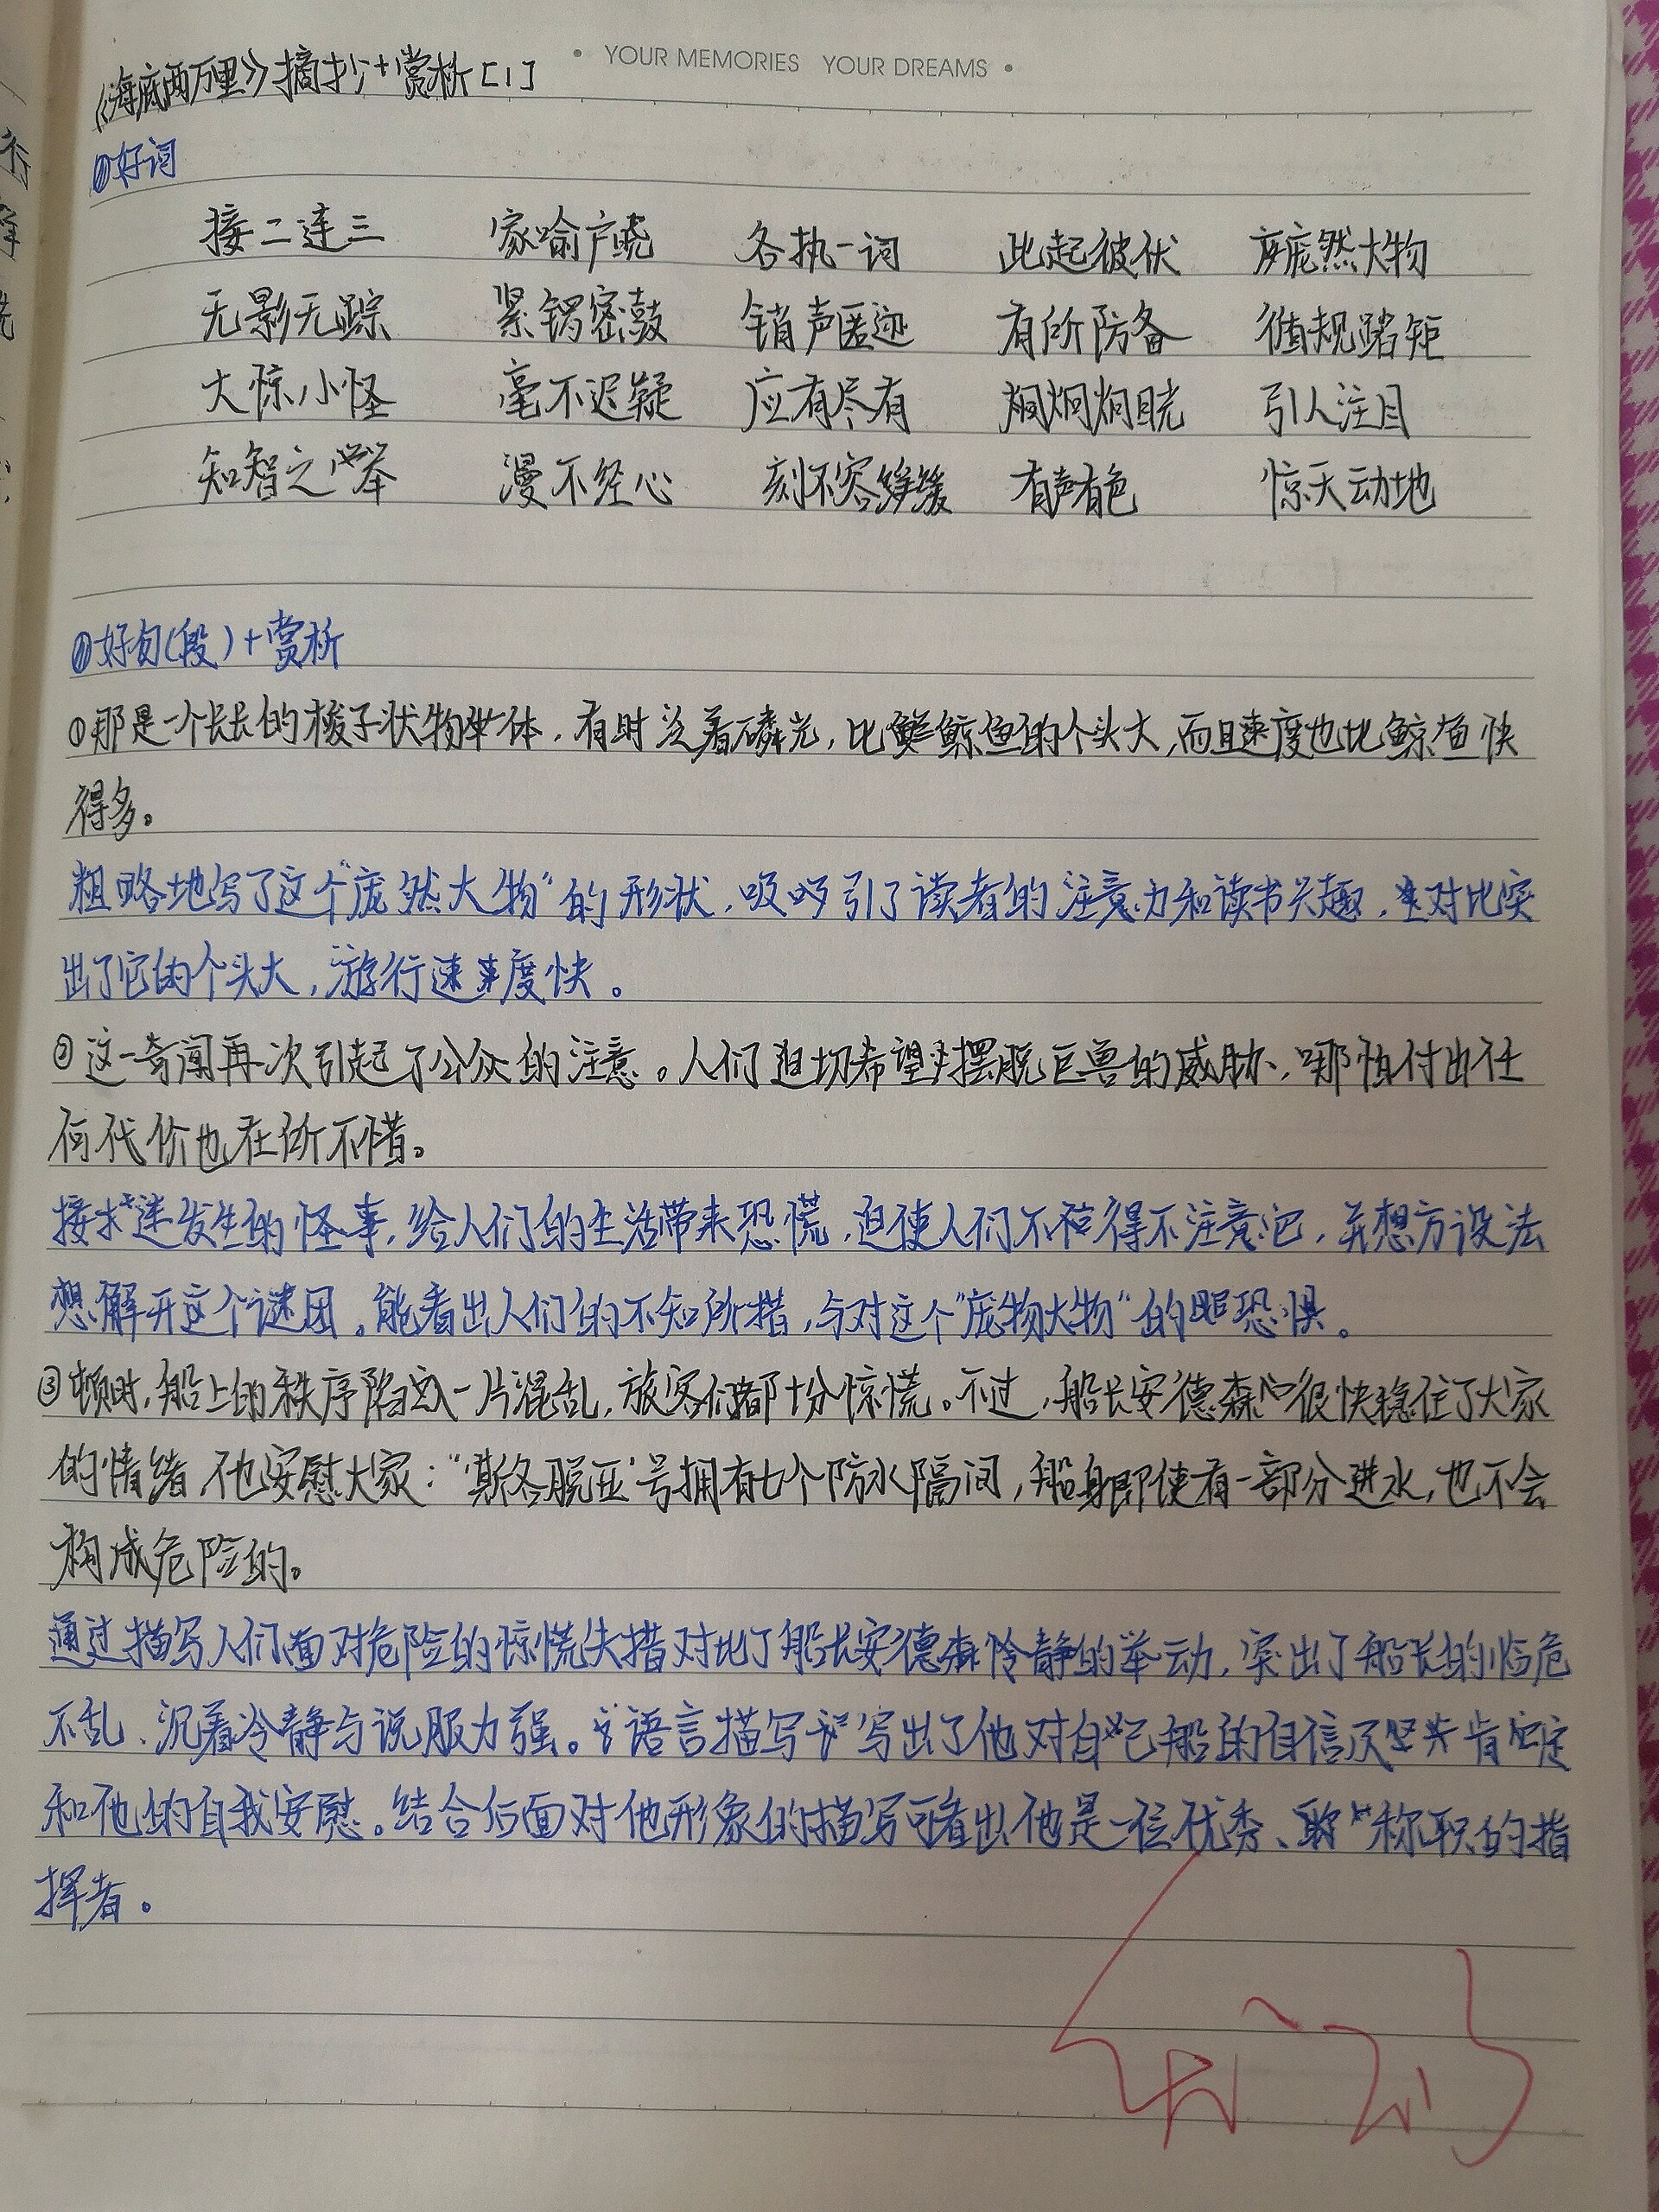 YOUR MEMORIES YOUR DREAMS
《海底两万里》摘抄+赏析[1]
好词
接二连三 家喻户晓 各执一词 此起彼伏 庞然大物
无影无踪 紧锣密鼓 销声匿迹 有所防备 循规蹈矩
大惊小怪 毫不迟疑 应有尽有 炯炯目光 引人注目
知智之举 漫不经心 刻不容缓 有声有色 惊天动地
好句(段)+赏析
①那是一个长长的梭子状物体,有时泛着磷光,比鲸鱼的个头大,而且速度也比鲸鱼快
得多。
粗略地写了这个"庞然大物"的形状,吸引了读者的注意力和读书兴趣,对比突
出了它的个头大,游行速度快。
②这一奇闻再次引起了公众的注意。人们迫切希望摆脱巨兽的威胁,哪怕付出任
何代价也在所不惜。
接连发生的怪事,给人们的生活带来恐慌,迫使人们不得不注意它,并想方设法
想解开这个谜团。能看出人们的不知所措,与对这个"庞物大物"的恐惧。
③顿时,船上的秩序陷入一片混乱,旅客们都十分惊慌。不过,船长安德森很快稳住了大家
的情绪,他安慰大家:"'斯各脱亚'号拥有七个防水隔间,船身即使有一部分进水,也不会
构成危险的。
通过描写人们面对危险的惊慌失措对比了船长安德森冷静的举动,突出了船长的临危
不乱、沉着冷静与说服力强。语言描写写出了他对自己船的自信及肯定
和他的自我安慰。结合后面对他形象的描写可看出他是一位优秀、称职的指
挥者。